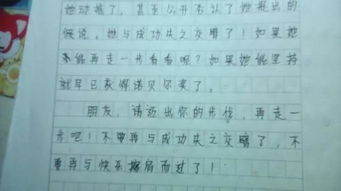 她动摇了，甚至公开否认了她提出的
假说，她与成功失之交臂了！如果她
来能再走一步看看呢？如果她能坚持
就早已获得诺贝尔奖了。
朋友，请迈出你的步伐，再走一
步吧！不要再与成功失之交臂了，不
要再与快乐擦肩而过了！